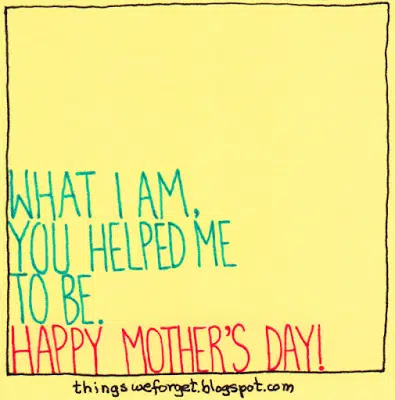 WHAT I AM,
YOU HELPED ME
TO BE.
HAPPY MOTHER'S DAY!
thingsweforget.blogspot.com